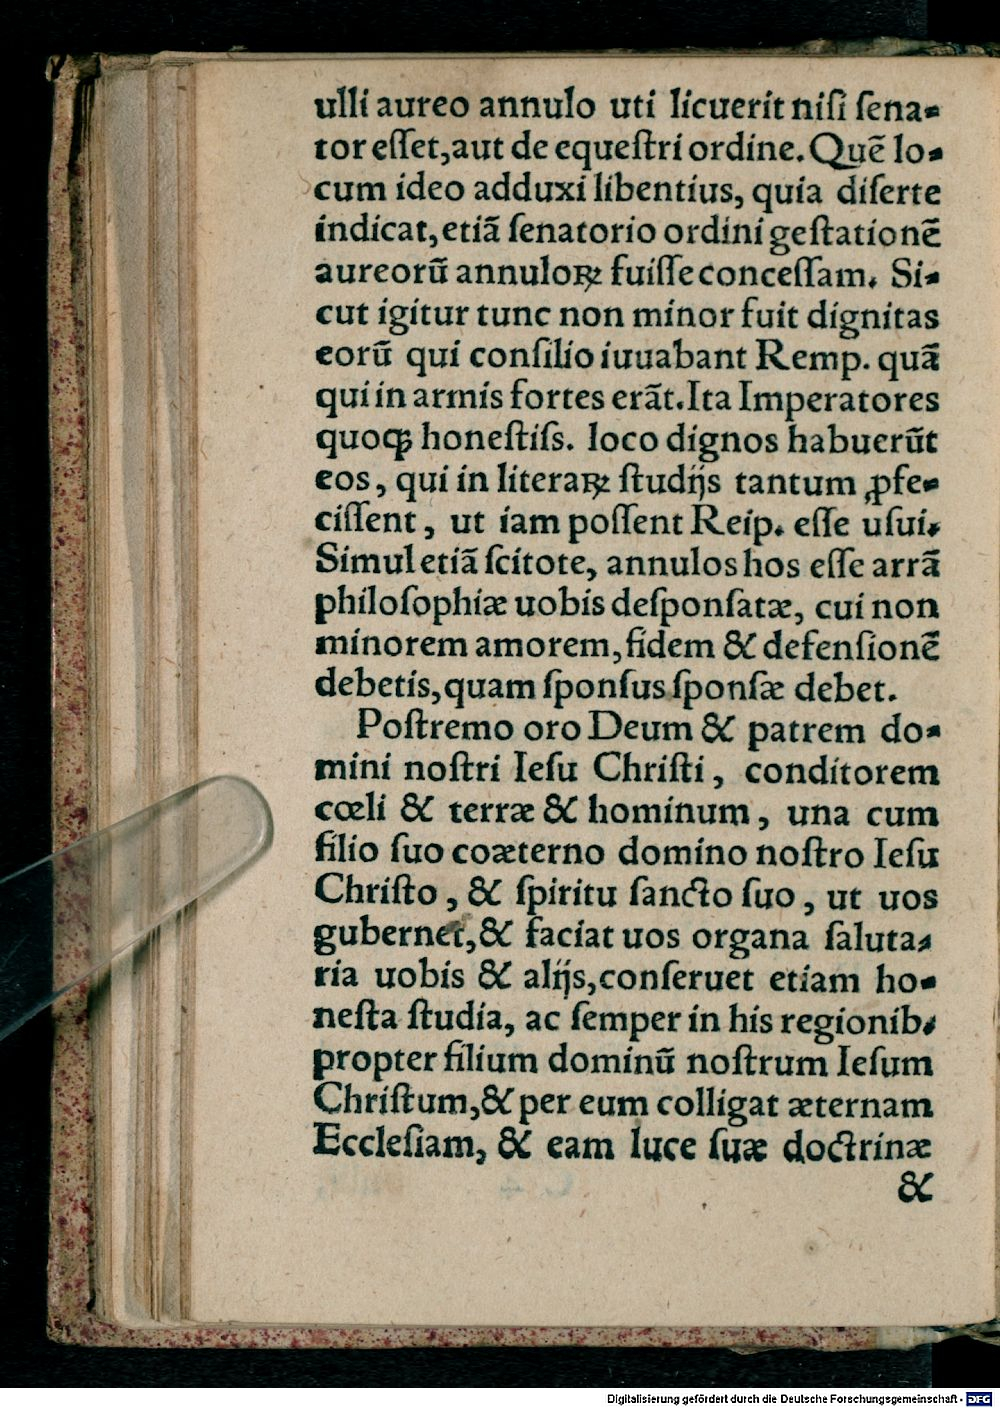 ulli aureo annulo uti licuerit niſi ſena-
tor eſſet,aut de equeſtri ordine. Quẽ lo-
cum ideo adduxi libentius, quia diſerte
indicat,etiã ſenatorio ordini geſtationẽ
aureorũ annuloꝝ fuiſſe conceſſam. Si-
cut igitur tunc non minor fuit dignitas
eorũ qui conſilio iuuabant Remp. quã
qui in armis fortes erãt.Ita Imperatores
quoqꝫ honeſtiſs. loco dignos habuerũt
eos, qui in literaꝝ ſtudijs tantum ꝓfe-
ciſſent, ut iam poſſent Reip. eſſe uſui.
Simul etiã ſcitote, annulos hos eſſe arrã
philoſophiæ uobis deſponſatæ, cui non
minorem amorem,fidem & defenſionẽ
debetis,quam ſponſus ſponſæ debet.
Poſtremo oro Deum & patrem do-
mini noſtri Ieſu Chriſti, conditorem
cœli & terræ & hominum, una cum
filio ſuo coæterno domino noſtro Ieſu
Chriſto, & ſpiritu ſancto ſuo, ut uos
gubernet,& faciat uos organa ſaluta-
ria uobis & alijs,conſeruet etiam ho-
neſta ſtudia, ac ſemper in his regionib.
propter filium dominũ noſtrum Ieſum
Chriſtum,& per eum colligat æternam
Eccleſiam, & eam luce ſuæ doctrinæ
&
Digitalisierung gefördert durch die Deutsche Forschungsgemeinschaft - DFG